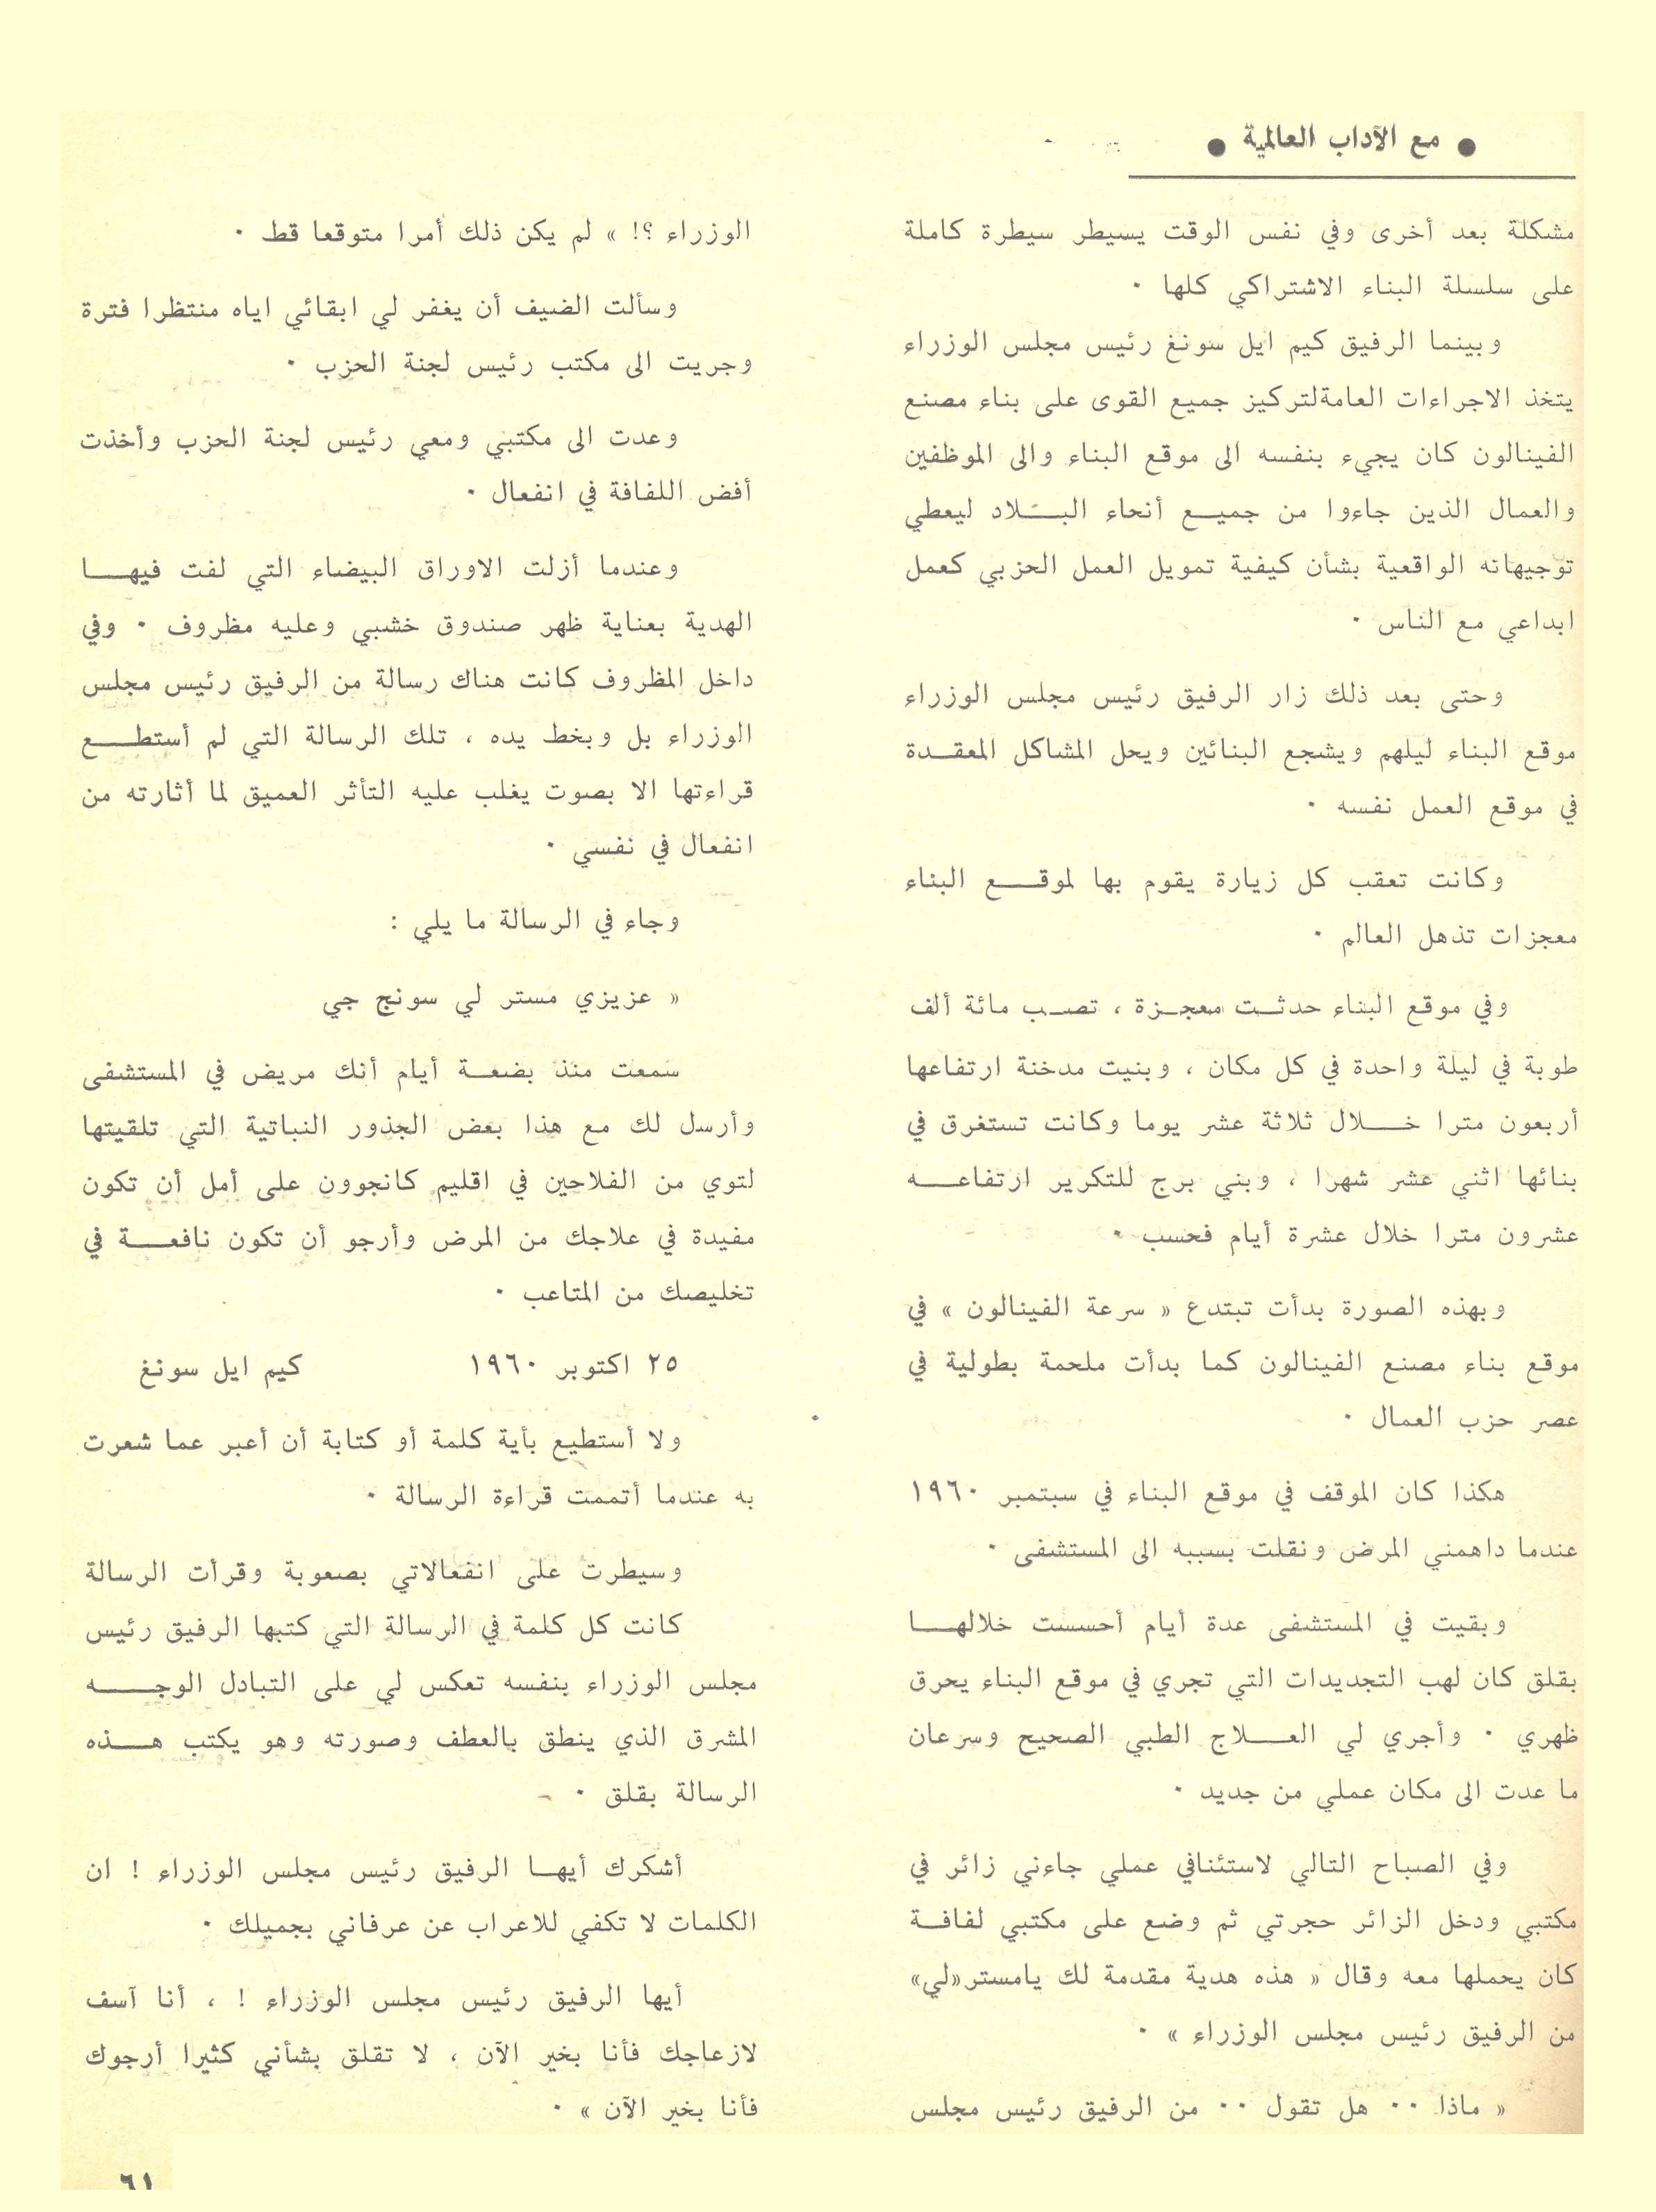 ● مع الآداب العالمية ●
مشكلة بعد أخرى وفي نفس الوقت يسيطر سيطرة كاملة
على سلسلة البناء الاشتراكي كلها ٠
وبينما الرفيق كيم ايل سونغ رئيس مجلس الوزراء
يتخذ الاجراءات العامةلتركيز جميع القوى على بناء مصنع
الفينالون كان يجيء بنفسه الى موقع البناء والى الموظفين
والعمال الذين جاءوا من جميع أنحاء البلاد ليعطي
توجيهاته الواقعية بشأن كيفية تمويل العمل الحزبي كعمل
ابداعي مع الناس ٠
وحتى بعد ذلك زار الرفيق رئيس مجلس الوزراء
موقع البناء ليلهم ويشجع البنائين ويحل المشاكل المعقدة
في موقع العمل نفسه ٠
وكانت تعقب كل زيارة يقوم بها لموقع البناء
معجزات تذهل العالم ٠
وفي موقع البناء حدثت معجزة ، تصب مائة ألف
طوبة في ليلة واحدة في كل مكان ، وبنيت مدخنة ارتفاعها
أربعون مترا خلال ثلاثة عشر يوما وكانت تستغرق في
بنائها اثني عشر شهرا ، وبني برج للتكرير ارتفاعه
عشرون مترا خلال عشرة أيام فحسب ٠
وبهذه الصورة بدأت تبتدع « سرعة الفينالون » في
موقع بناء مصنع الفينالون كما بدأت ملحمة بطولية في
عصر حزب العمال ٠
هكذا كان الموقف في موقع البناء في سبتمبر ١٩٦٠
عندما داهمني المرض ونقلت بسببه الى المستشفى ٠
وبقيت في المستشفى عدة أيام أحسست خلالها
بقلق كان لهب التجديدات التي تجري في موقع البناء يحرق
ظهري ٠ وأجري لي العلاج الطبي الصحيح وسرعان
ما عدت الى مكان عملي من جديد ٠
وفي الصباح التالي لاستئنافي عملي جاءني زائر في
مكتبي ودخل الزائر حجرتي ثم وضع على مكتبي لفافة
كان يحملها معه وقال « هذه هدية مقدمة لك يامستر«لي»
من الرفيق رئيس مجلس الوزراء » ٠
« ماذا ٠٠ هل تقول ٠٠ من الرفيق رئيس مجلس
الوزراء ؟! » لم يكن ذلك أمرا متوقعا قط ٠
وسألت الضيف أن يغفر لي ابقائي اياه منتظرا فترة
وجريت الى مكتب رئيس لجنة الحزب ٠
وعدت الى مكتبي ومعي رئيس لجنة الحزب وأخذت
أفض اللفافة في انفعال ٠
وعندما أزلت الاوراق البيضاء التي لفت فيها
الهدية بعناية ظهر صندوق خشبي وعليه مظروف ٠ وفي
داخل المظروف كانت هناك رسالة من الرفيق رئيس مجلس
الوزراء بل وبخط يده ، تلك الرسالة التي لم أستطع
قراءتها الا بصوت يغلب عليه التأثر العميق لما أثارته من
انفعال في نفسي ٠
وجاء في الرسالة ما يلي :
« عزيزي مستر لي سونج جي
سمعت منذ بضعة أيام أنك مريض في المستشفى
وأرسل لك مع هذا بعض الجذور النباتية التي تلقيتها
لتوي من الفلاحين في اقليم كانجوون على أمل أن تكون
مفيدة في علاجك من المرض وأرجو أن تكون نافعة في
تخليصك من المتاعب ٠
٢٥ اكتوبر ١٩٦٠ كيم ايل سونغ
ولا أستطيع بأية كلمة أو كتابة أن أعبر عما شعرت
به عندما أتممت قراءة الرسالة ٠
وسيطرت على انفعالاتي بصعوبة وقرأت الرسالة
كانت كل كلمة في الرسالة التي كتبها الرفيق رئيس
مجلس الوزراء بنفسه تعكس لي على التبادل الوجه
المشرق الذي ينطق بالعطف وصورته وهو يكتب هذه
الرسالة بقلق ٠
أشكرك أيها الرفيق رئيس مجلس الوزراء ! ان
الكلمات لا تكفي للاعراب عن عرفاني بجميلك ٠
أيها الرفيق رئيس مجلس الوزراء ! ، أنا آسف
لازعاجك فأنا بخير الآن ، لا تقلق بشأني كثيرا أرجوك
فأنا بخير الآن » ٠
٦١